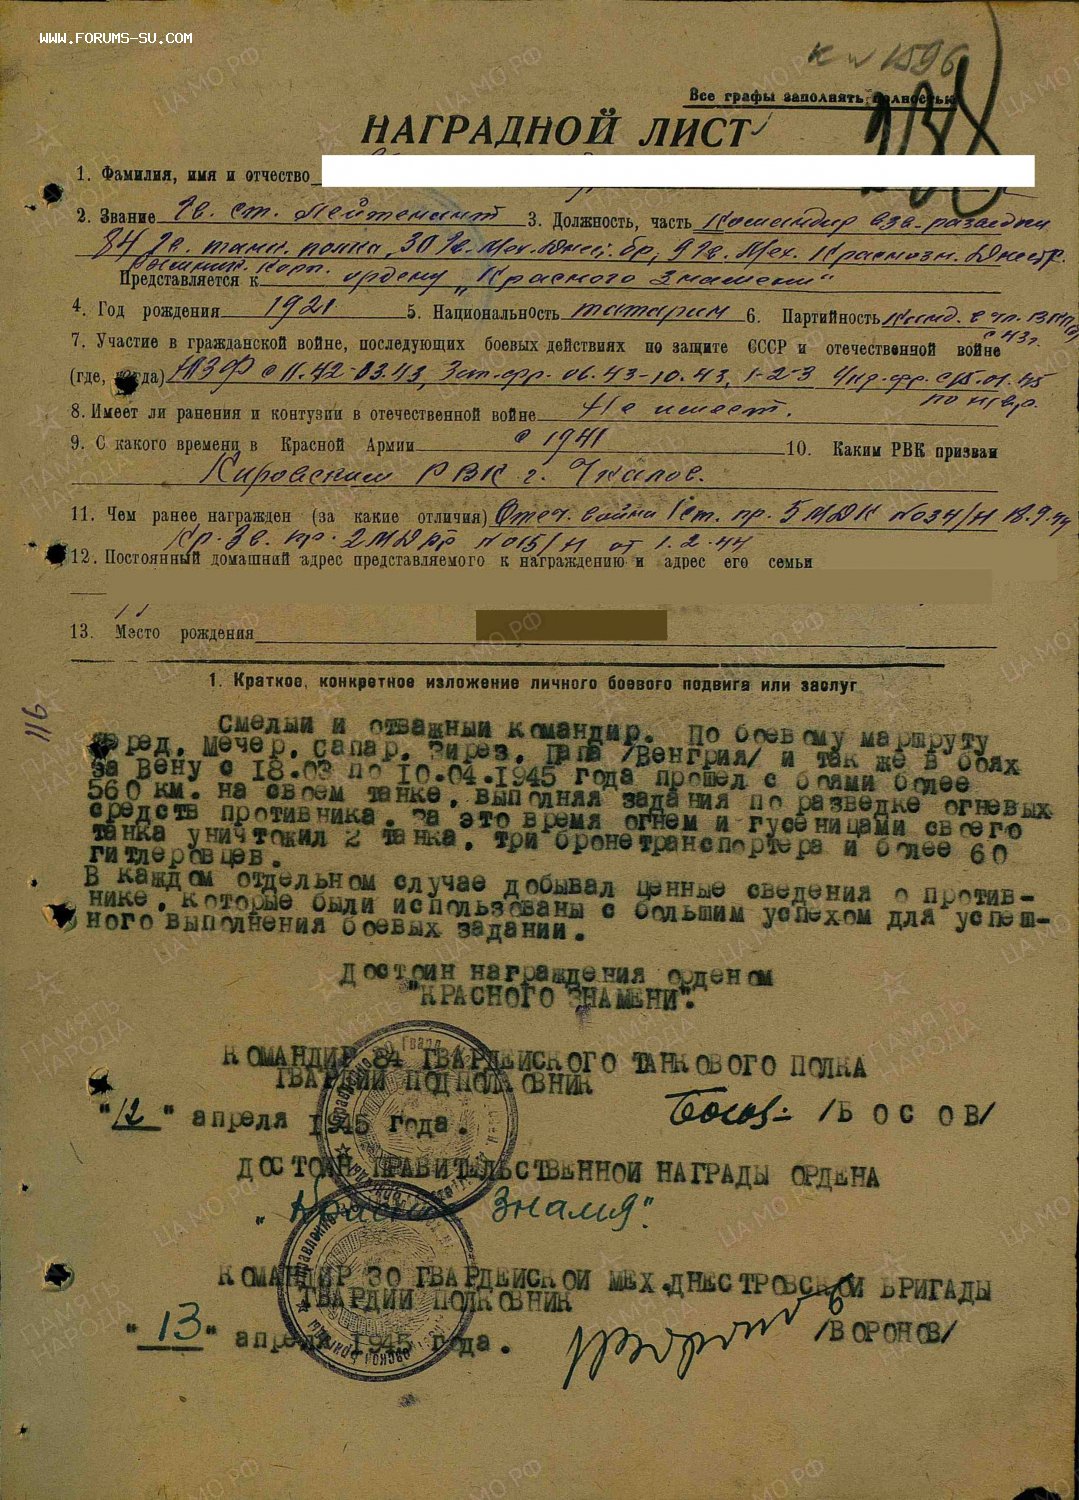 WWW.FORUMS-SU.COM
к № 1596
Все графы заполнять полностью
НАГРАДНОЙ ЛИСТ
1. Фамилия, имя и отчество
2. Звание Гв. ст. Лейтенант 3. Должность, часть Командир взв. разведки
84 Гв. танк. полка, 30 Гв. Мех. Днес. бр, 9 Гв. Мех. Краснозн. Днестр.
корп.
Представляется к ордену „Красного Знамени"
4. Год рождения 1921 5. Национальность татарин 6. Партийность Канд. в чл. ВКП(б)
с 43г.
7. Участие в гражданской войне, последующих боевых действиях по защите СССР и отечественной войне
(где, когда) ЮЗФ с 11.42-03.43, Зап. фр. 06.43-10.43, 1-2-3 Укр. фр. с 15.01.45
по н/вр.
8. Имеет ли ранения и контузии в отечественной войне Не имеет.
9. С какого времени в Красной Армии с 1941 10. Каким РВК призван
Кировским РВК г. Чкалов.
11. Чем ранее награжден (за какие отличия) Отеч. война 1 ст. пр. 5 МДК №034/Н 18.9.44
Кр. Зв. пр. №015/Н от 1.2.44
12. Постоянный домашний адрес представляемого к награждению и адрес его семьи
13. Место рождения
1. Краткое, конкретное изложение личного боевого подвига или заслуг
116
Смелый и отважный командир. По боевому маршруту
Черед, Мечер, Сапар, Зирез, Папа /Венгрия/ и так же в боях
за Вену с 18.03 по 10.04.1945 года прошел с боями более
560 км. на своем танке, выполняя задания по разведке огневых
средств противника. За это время огнем и гусеницами своего
танка уничтожил 2 танка, три бронетранспортера и более 60
гитлеровцев.
В каждом отдельном случае добывал ценные сведения о против-
нике, которые были использованы с большим успехом для успеш-
ного выполнения боевых задании.
Достоин награждения орденом
"КРАСНОГО ЗНАМЕНИ".
КОМАНДИР 84 ГВАРДЕЙСКОГО ТАНКОВОГО ПОЛКА
ГВАРДИИ ПОДПОЛКОВНИК
"12" апреля 1945 года. Босов /БОСОВ/
ДОСТОИН ПРАВИТЕЛЬСТВЕННОЙ НАГРАДЫ ОРДЕНА
„Красное Знамя".
КОМАНДИР 30 ГВАРДЕЙСКОЙ МЕХ.ДНЕСТРОВСКОЙ БРИГАДЫ
ГВАРДИИ ПОЛКОВНИК
"13" апреля 1945 года. /ВОРОНОВ/